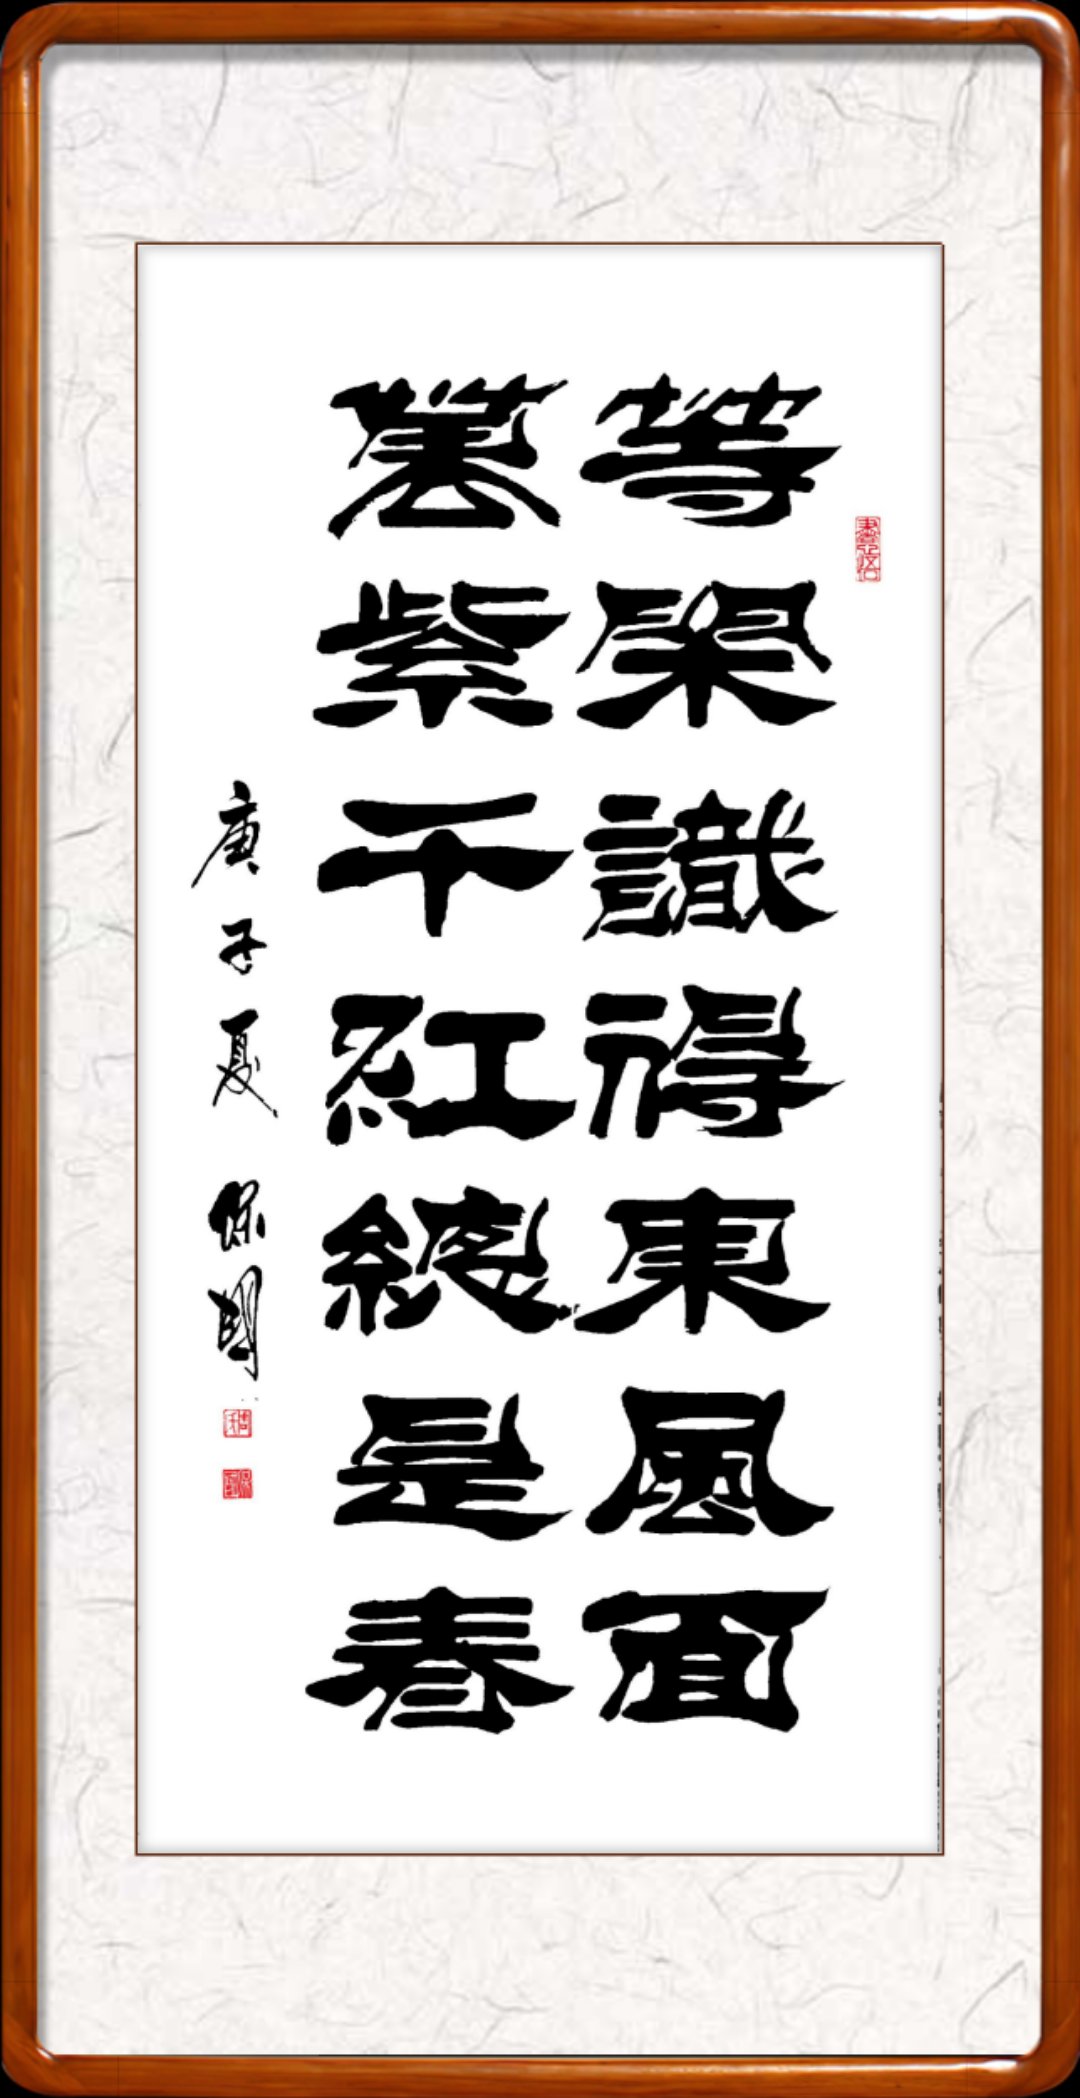 等閑識得東風面
萬紫千紅總是春
庚子夏 保